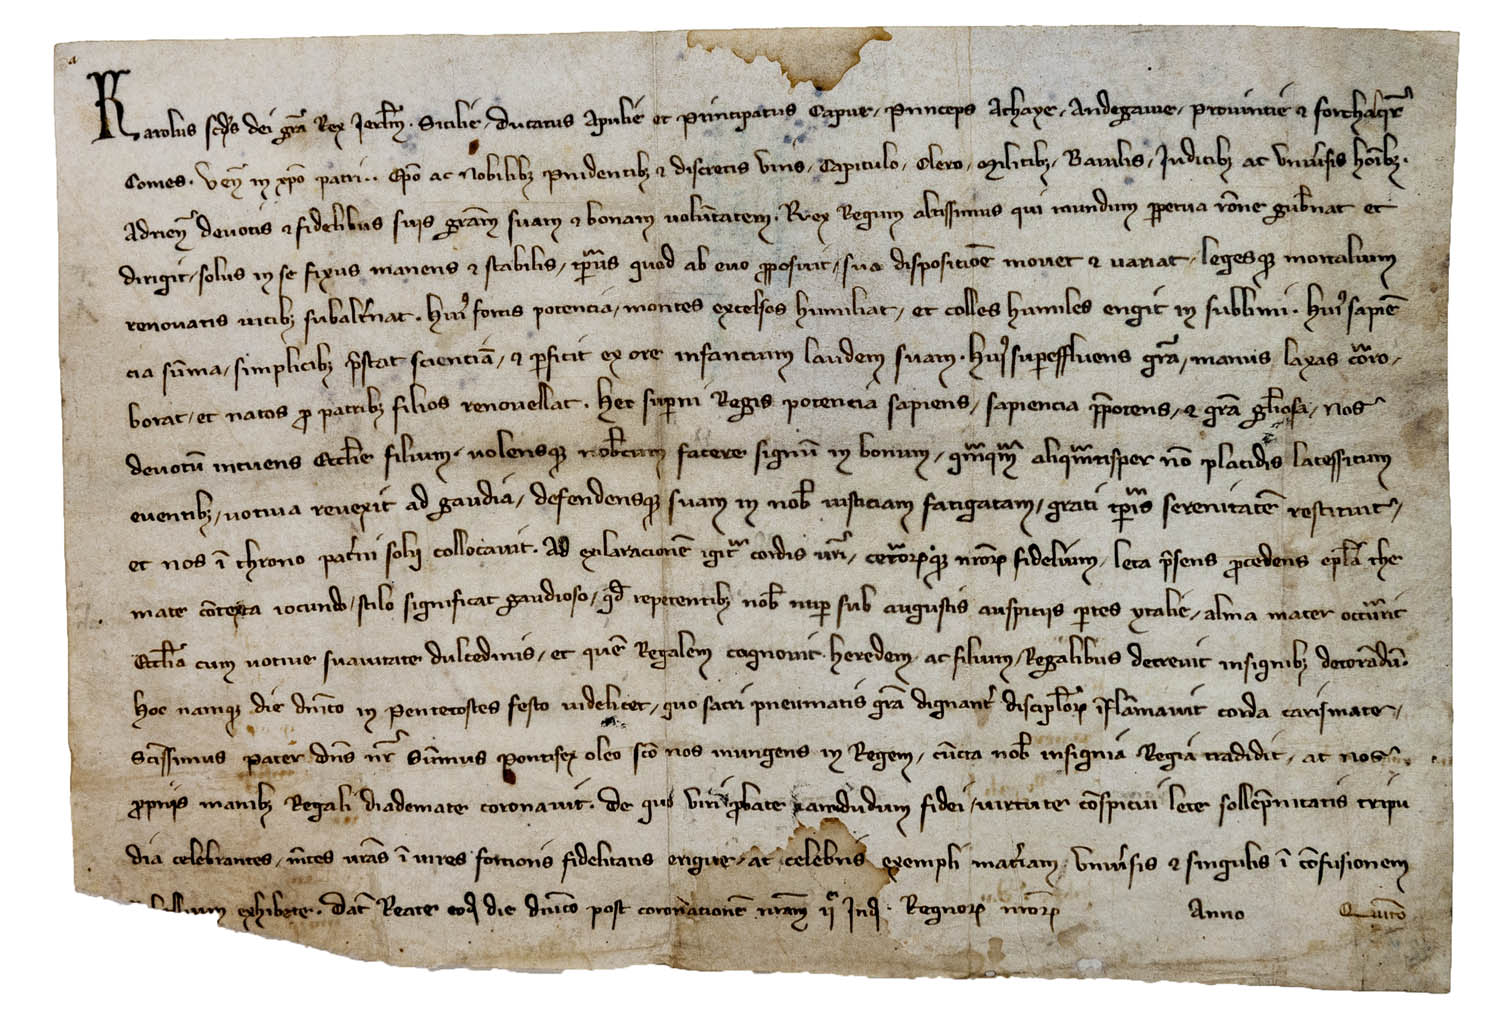 Karolus scds dei gra Rex Jerlm. Sicilie, Ducatus Apulie et Principatus Capue, Princeps Achaye, Andegavie, Provincie et forchalqr
Comes. Ven in xpo patri.. Epo ac Nobilibz Prudentibz et discretis viris, Capitulo, Clero, Militibz, Baiulis, Judicibz ac Universis hoibz.
Adrien devotis et fidelibus suis gram suam et bonam voluntatem. Rex Regum altissimus qui mundum perpetua rone gubnat et
dirigit, solus in se fixus manens et stabilis, tpus quod ab evo proposuit, sua dispositioe movet et variat, legesqz mortalium
renovatis vicibz subaltnat. Hui fortis potencia, montes excelsos humiliat, et colles humiles erigit in sublimi. Hui sapien
cia suma, simplicibz prestat scienciam, et perficit ex ore infancium laudem suam. Hui supereffluens gra, manus laxas corro,
borat, et natos pro patribz filios renovellat. Hec superni Regis potencia sapiens, sapiencia prepotens, et gra gliosa, nos
devotu intuens Ecclie filium, volensqz nobcum facere signu in bonum, qmqm aliqmtisper no placidis lacessitum
eventibz, votiva revexit ad gaudia, defendensqz suam in nob iusticiam fatigatam, grati tpis serenitate restituit,
et nos i throno patni solii collocavit. Ad exlaracione igit cordis vri, ceterorqz nror fidelium, leta psens procedens epla the
mate contexta iocundo, stilo significat gaudioso, qd repetentibz nob nup sub augustis auspitiis ptes ytalie, alma mater occurrit
Ecclia cum votive suavitate dulcedinis, et que Regalem cognovit heredem ac filium, Regalibus decrevit insignibz decorandu.
Hoc namqz die dnico in Pentecostes festo videlicet, quo sacri pneumatis gra dignant disciplor iflamavit corda carismate,
Scissimus pater dns nr Summus Pontifex oleo sco nos inungens in Regem, cucta nob insignia Regia tradidit, ac nos
propriis manibz Regali diademate coronavit. De quo viri probate iamdudum fidei, virtute conspicui lete sollepnitatis tripu
dia celebrantes, mtes vras i vires fortioris fidelitatis erigite, ac celebris exempli matiam, Universis et singulis i confusionem
exhibete. Dat Reate eod die dnico post coronatione nram ij Ind. Regnor nror Anno Quito